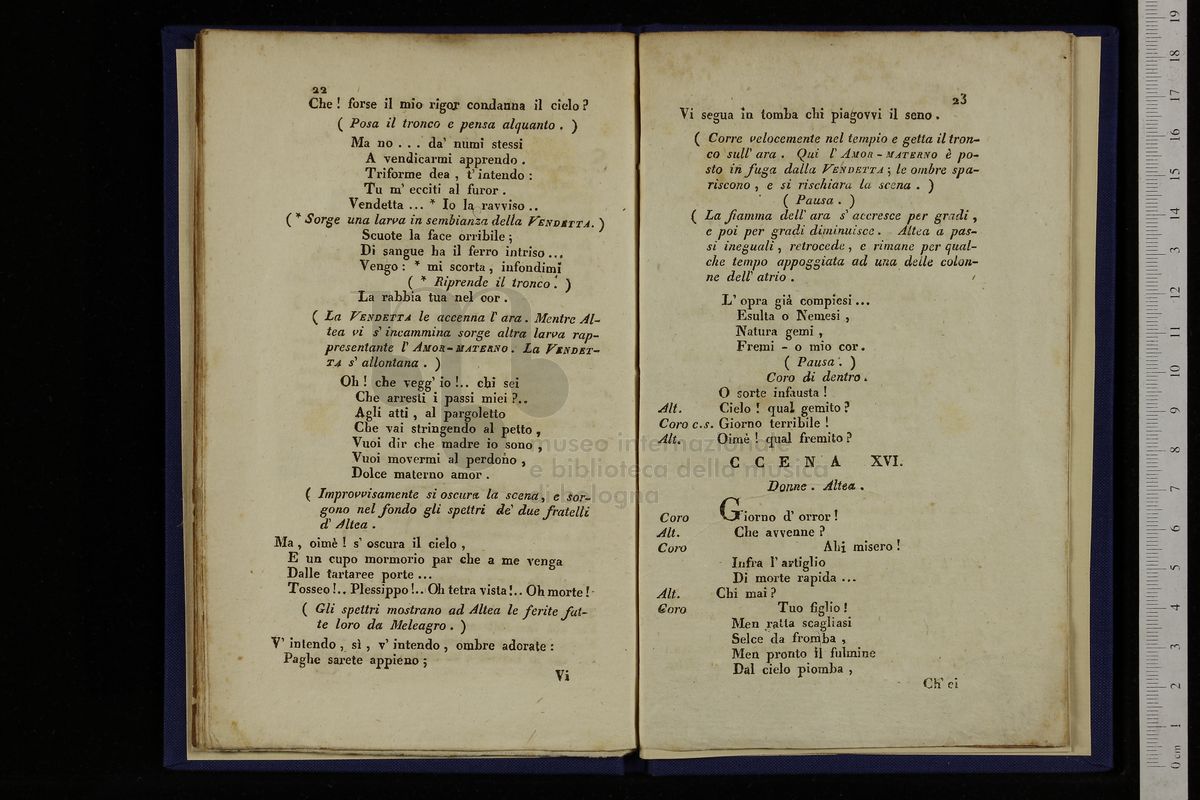 22
Che ! forse il mio rigor condanna il cielo ?
( Posa il tronco e pensa alquanto . )
Ma no . . . da' numi stessi
A vendicarmi apprendo .
Triforme dea , t' intendo :
Tu m' ecciti al furor .
Vendetta ... * Io la ravviso ..
( * Sorge una larva in sembianza della VENDETTA. )
Scuote la face orribile ;
Di sangue ha il ferro intriso ...
Vengo : * mi scorta , infondimi
( * Riprende il tronco . )
La rabbia tua nel cor .
( La VENDETTA le accenna l' ara . Mentre Al-
tea vi s' incammina sorge altra larva rap-
presentante l' AMOR-MATERNO . La VENDET-
TA s' allontana . )
Oh ! che vegg' io !.. chi sei
Che arresti i passi miei ?..
Agli atti , al pargoletto
Che vai stringendo al petto ,
Vuoi dir che madre io sono ,
Vuoi movermi al perdono ,
Dolce materno amor .
( Improvvisamente si oscura la scena , e sor-
gono nel fondo gli spettri de' due fratelli
d' Altea .
Ma , oimè ! s' oscura il cielo ,
E un cupo mormorio par che a me venga
Dalle tartaree porte ...
Tosseo !.. Plessippo !.. Oh tetra vista !.. Oh morte !
( Gli spettri mostrano ad Altea le ferite fat-
te loro da Meleagro . )
V' intendo , sì , v' intendo , ombre adorate :
Paghe sarete appieno ;
Vi
23
Vi segua in tomba chi piagovvi il seno .
( Corre velocemente nel tempio e getta il tron-
co sull' ara . Qui l' AMOR - MATERNO è po-
sto in fuga dalla VENDETTA ; le ombre spa-
riscono , e si rischiara la scena . )
( Pausa . )
( La fiamma dell' ara s' accresce per gradi ,
e poi per gradi diminuisce . Altea a pas-
si ineguali , retrocede , e rimane per qual-
che tempo appoggiata ad una delle colon-
ne dell' atrio .
L' opra già compiesi ...
Esulta o Nemesi ,
Natura gemi ,
Fremi - o mio cor .
( Pausa . )
Coro di dentro .
O sorte infausta !
Alt. Cielo ! qual gemito ?
Coro c.s. Giorno terribile !
Alt. Oimè ! qual fremito ?
C C E N A XVI.
Donne . Altea .
Coro Giorno d' orror !
Alt. Che avvenne ?
Coro Ahi misero !
Infra l' artiglio
Di morte rapida ...
Alt. Chi mai ?
Coro Tuo figlio !
Men ratta scagliasi
Selce da fromba ,
Men pronto il fulmine
Dal cielo piomba ,
Ch' ei
museo internazionale
e biblioteca della musica
di bologna
0 cm 1 2 3 4 5 6 7 8 9 10 11 12 13 14 15 16 17 18 19